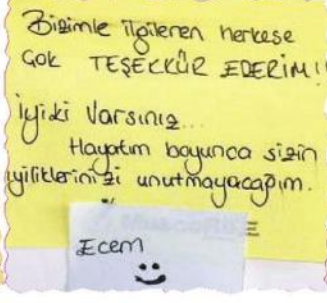 Bizimle ilgilenen herkese
Çok TEŞEKKÜR EDERİM!!
İyiki Varsınız...
Hayatım boyunca sizin
iyiliklerinizi unutmayacağım.
Ecem